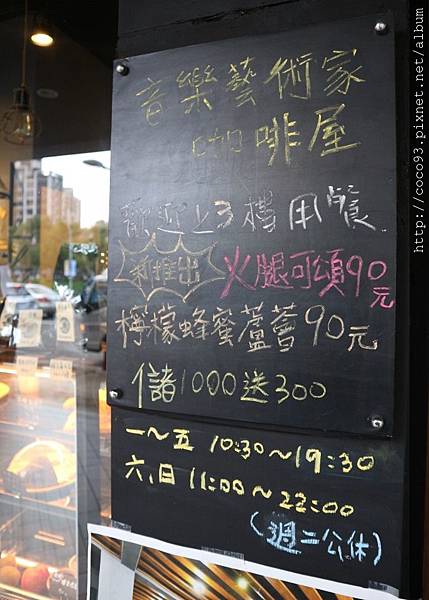 音樂藝術家
咖啡屋
歡迎上3樓用餐
新推出 火腿可頌90元
檸檬蜂蜜蘆薈90元
儲1000送300
一～五 10:30～19:30
六、日 11:00～22:00
(週二公休)
http://coco93.pixnet.net/album